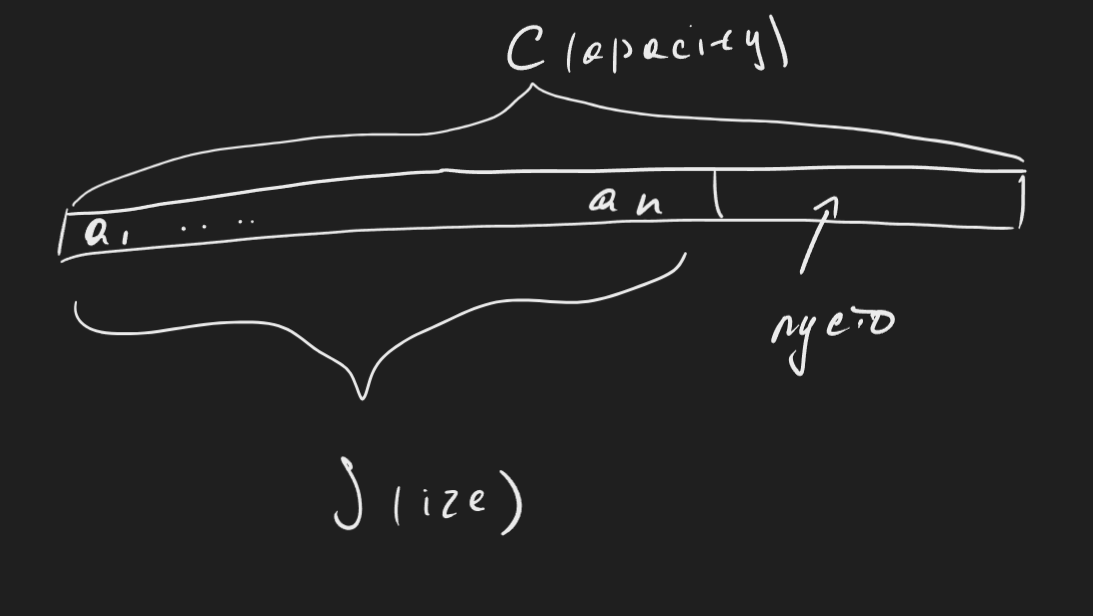 C (apacity)
a₁ .. .. aₙ
пусто
S (ize)